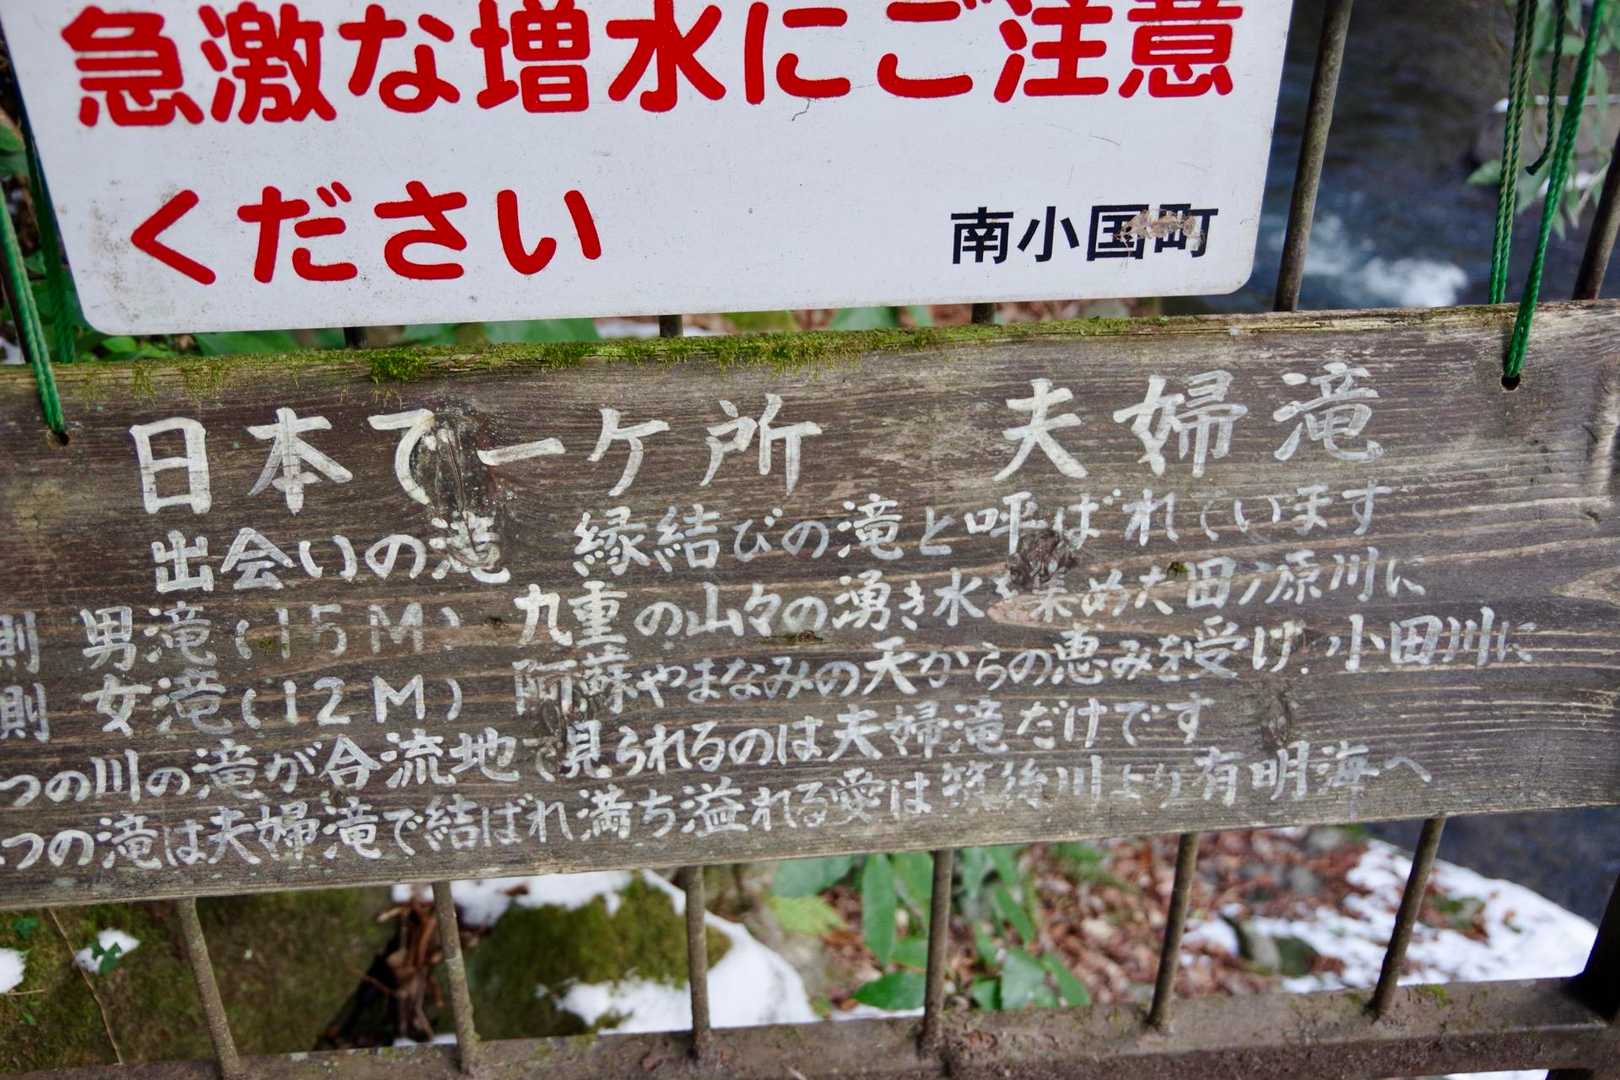 急激な増水にご注意
ください
南小国町
日本で一ケ所 夫婦滝
出会いの滝 縁結びの滝と呼ばれています
側 男滝(15M) 九重の山々の湧き水を集めた田ノ原川に
側 女滝(12M) 阿蘇やまなみの天からの恵みを受け 小田川に
つの川の滝が合流地で見られるのは夫婦滝だけです
つの滝は夫婦滝で結ばれ満ち溢れる愛は筑後川より有明海へ